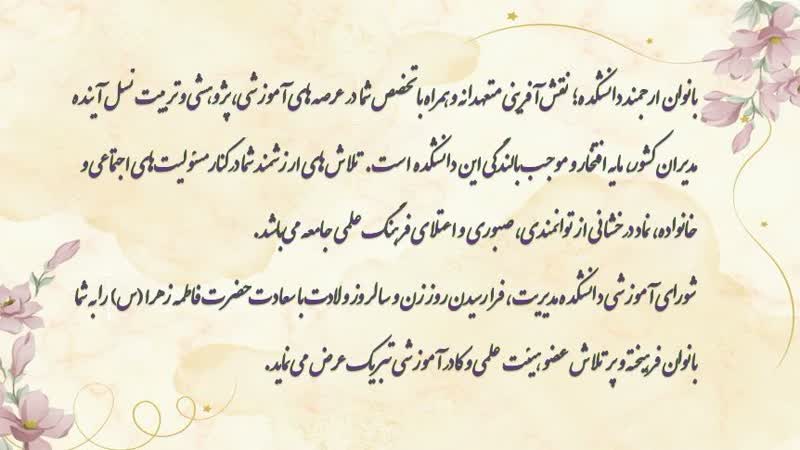 بانوان ارجمند دانشکده؛ نقش‌آفرینی متعهدانه و همراه با تخصص شما در عرصه‌های آموزشی، پژوهشی و تربیت نسل آینده
مدیران کشور، مایه افتخار و موجب بالندگی این دانشکده است. تلاش‌های ارزشمند شما در کنار مسئولیت‌های اجتماعی و
خانواده، نماد درخشانی از توانمندی، صبوری و اعتلای فرهنگ علمی جامعه می‌باشد.
شورای آموزشی دانشکده مدیریت، فرارسیدن روز زن و سالروز ولادت با سعادت حضرت فاطمه زهرا (س) را به شما
بانوان فرهیخته و پرتلاش عضو هیئت علمی و کادر آموزشی تبریک عرض می‌نماید.